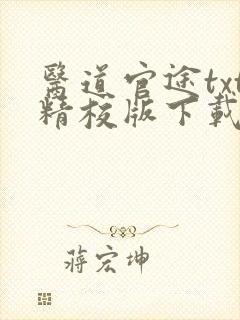 醫道官途txt
精校版下載
蔣宏坤